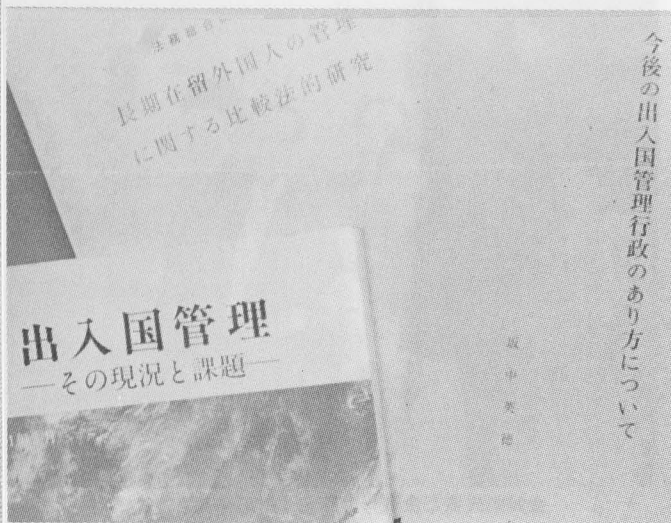 今後の出入国管理行政のあり方について
坂中英徳
法務総合
長期在留外国人の管理
に関する比較法的研究
出入国管理
—その現況と課題—